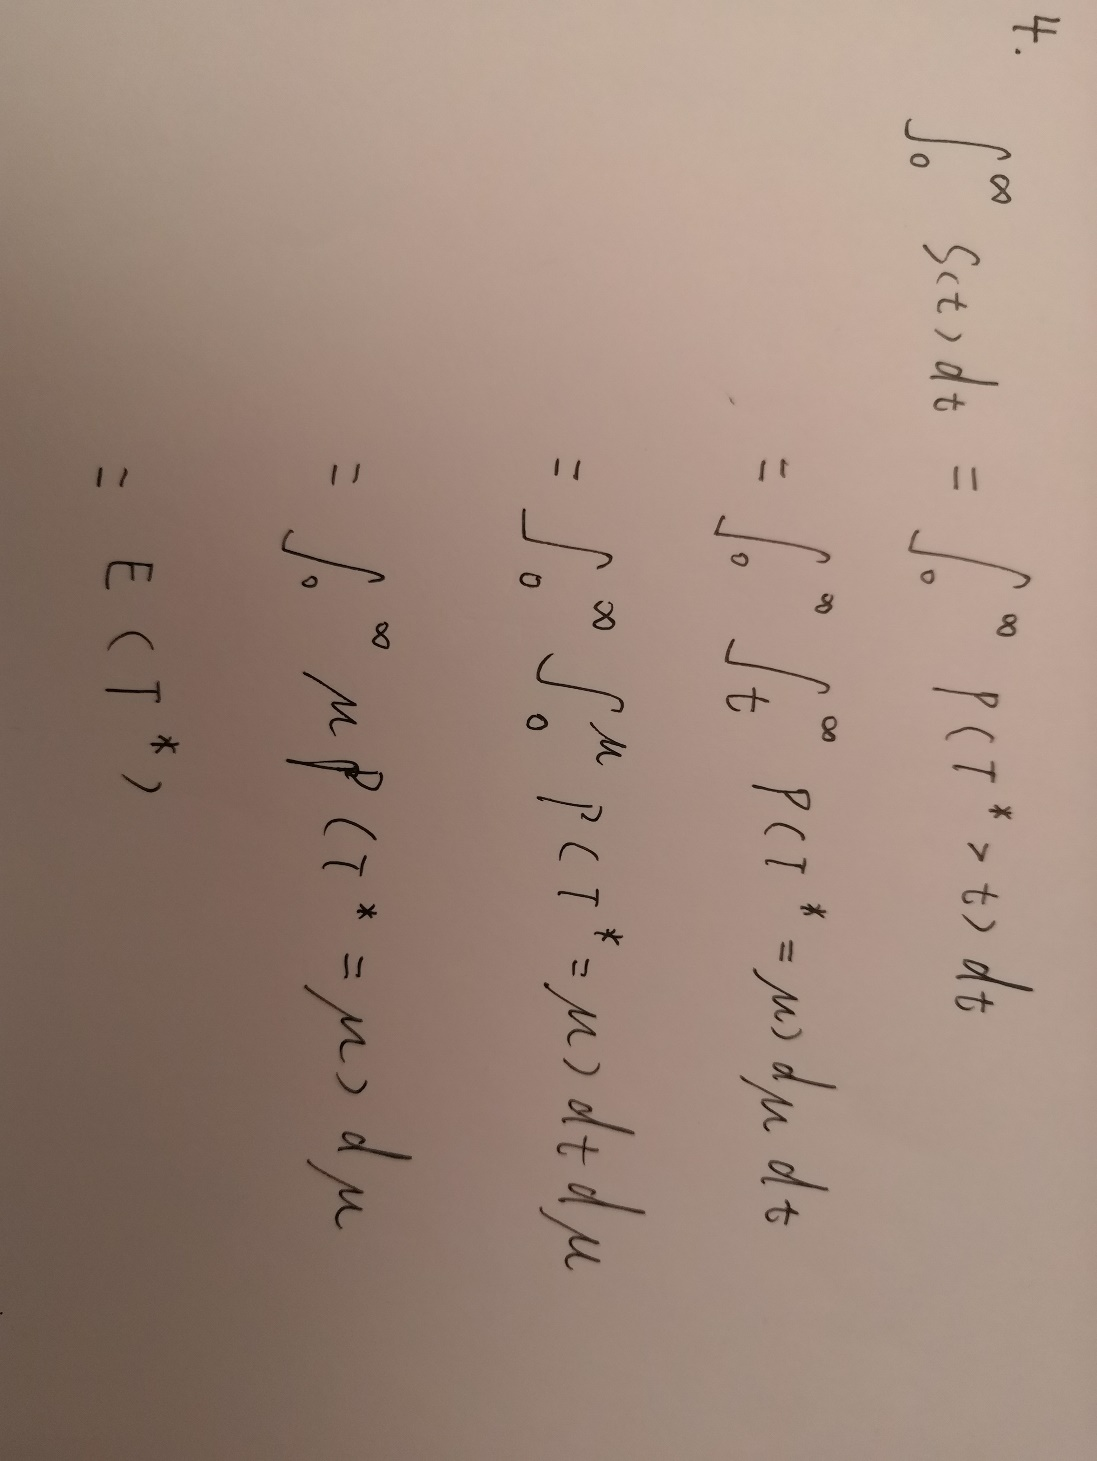 4.
∫₀^∞ S(t) dt = ∫₀^∞ P(T* > t) dt
= ∫₀^∞ ∫ₜ^∞ P(T* = μ) dμ dt
= ∫₀^∞ ∫₀^μ P(T* = μ) dt dμ
= ∫₀^∞ μ P(T* = μ) dμ
= E(T*)